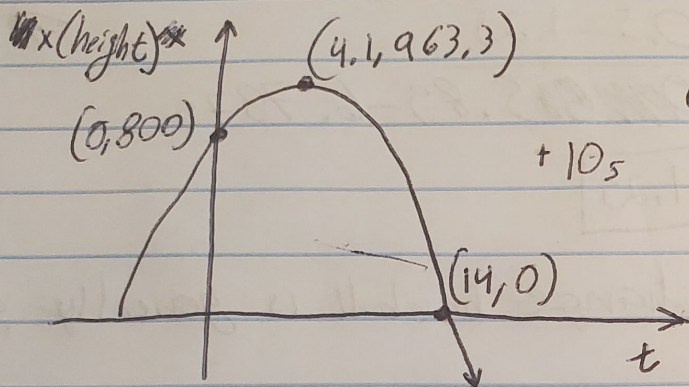 x (height)
(4.1, 963.3)
(0,800)
+10s
(14,0)
t